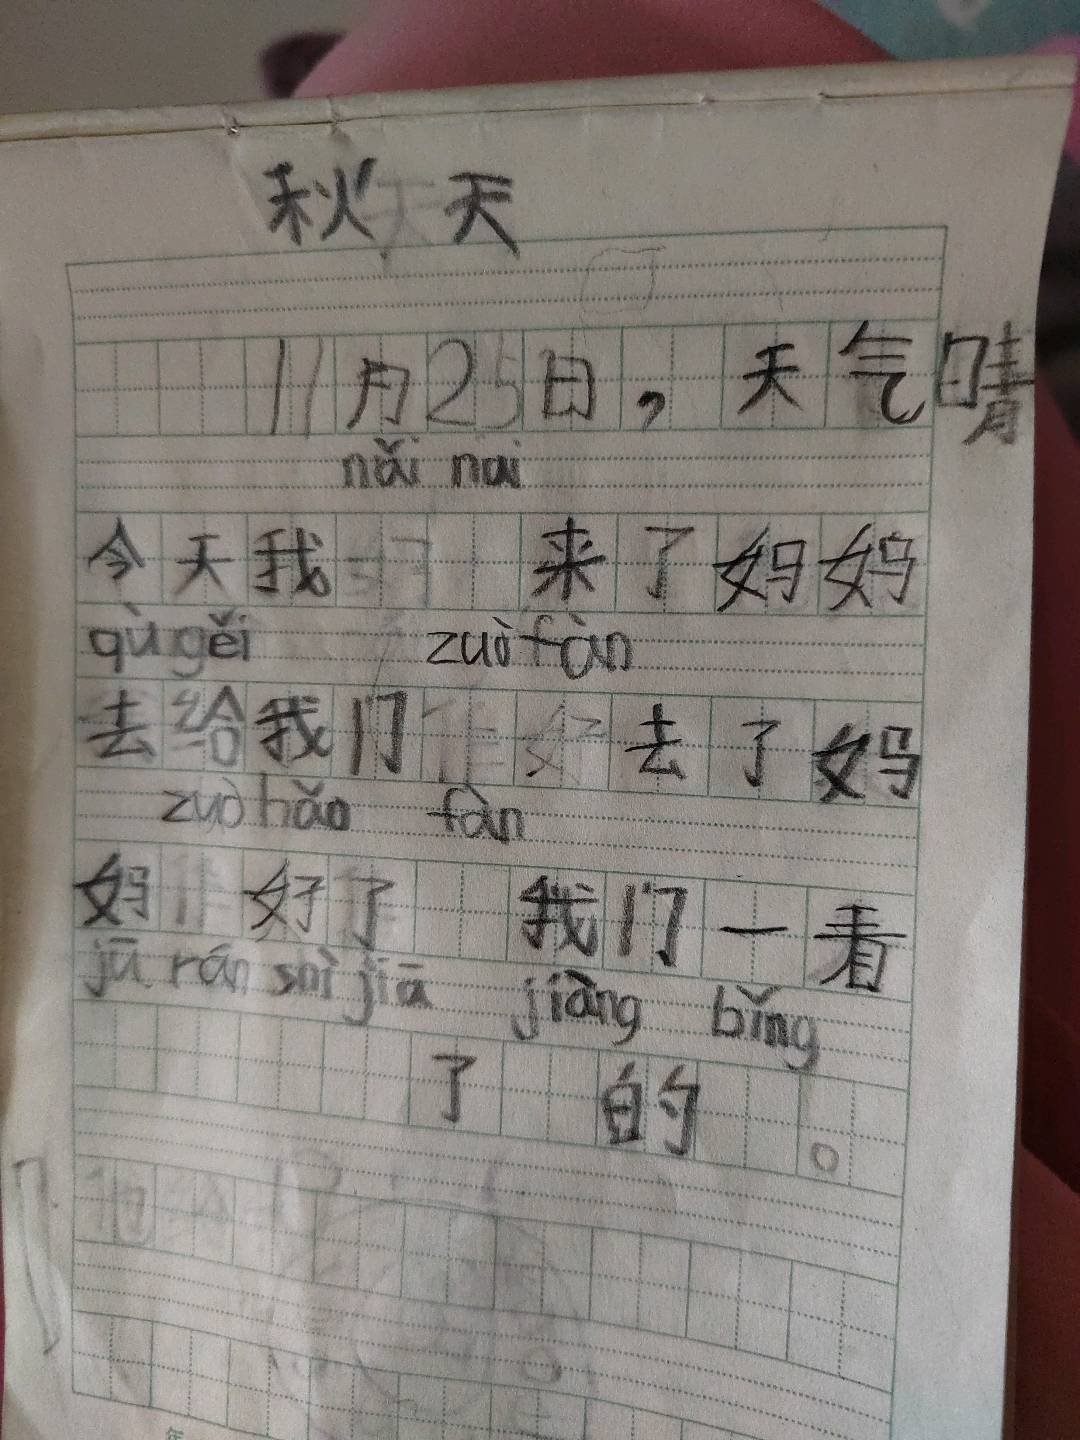 秋天
11月25日，天气晴
nǎi nai
今天我 来了妈妈
qù gěi zuò fàn
去给我们 去了妈
zuò hǎo fàn
妈 好了 我们一看
jū rán shì jiā jiàng bǐng
了 的 。